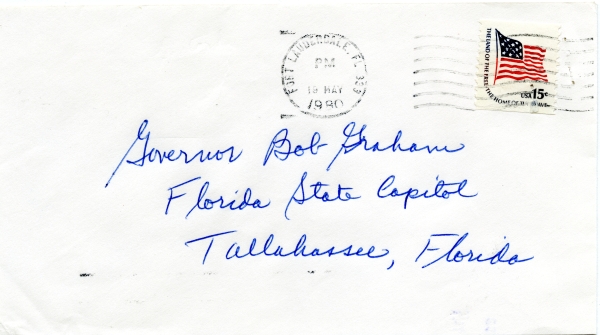 FORT LAUDERDALE, FL 333
PM
19 MAY
1980
THE LAND OF THE FREE, THE HOME OF THE BRAVE
USA 15c
Governor Bob Graham
Florida State Capitol
Tallahassee, Florida